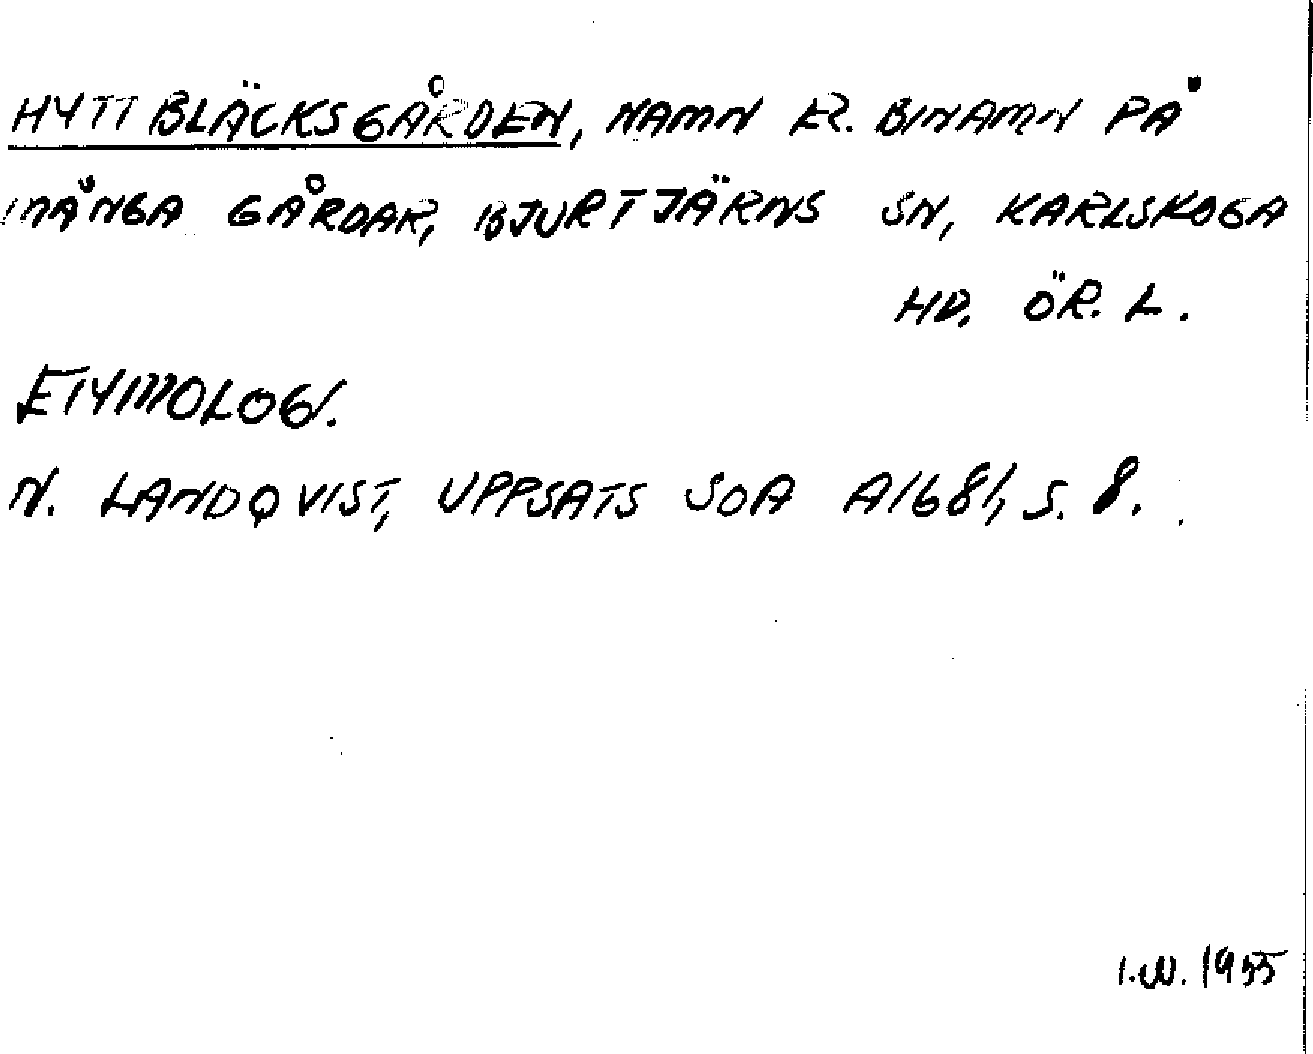 HYTTBLÄCKSGÅRDEN, NAMN EL. BINAMN PÅ
MÅNGA GÅRDAR, BJURTJÄRNS SN, KARLSKOGA
HD, ÖR. L.
ETYMOLOGI.
N. LANDQVIST, UPPSATS SOA A1681, S. 8.
I.W. 1955